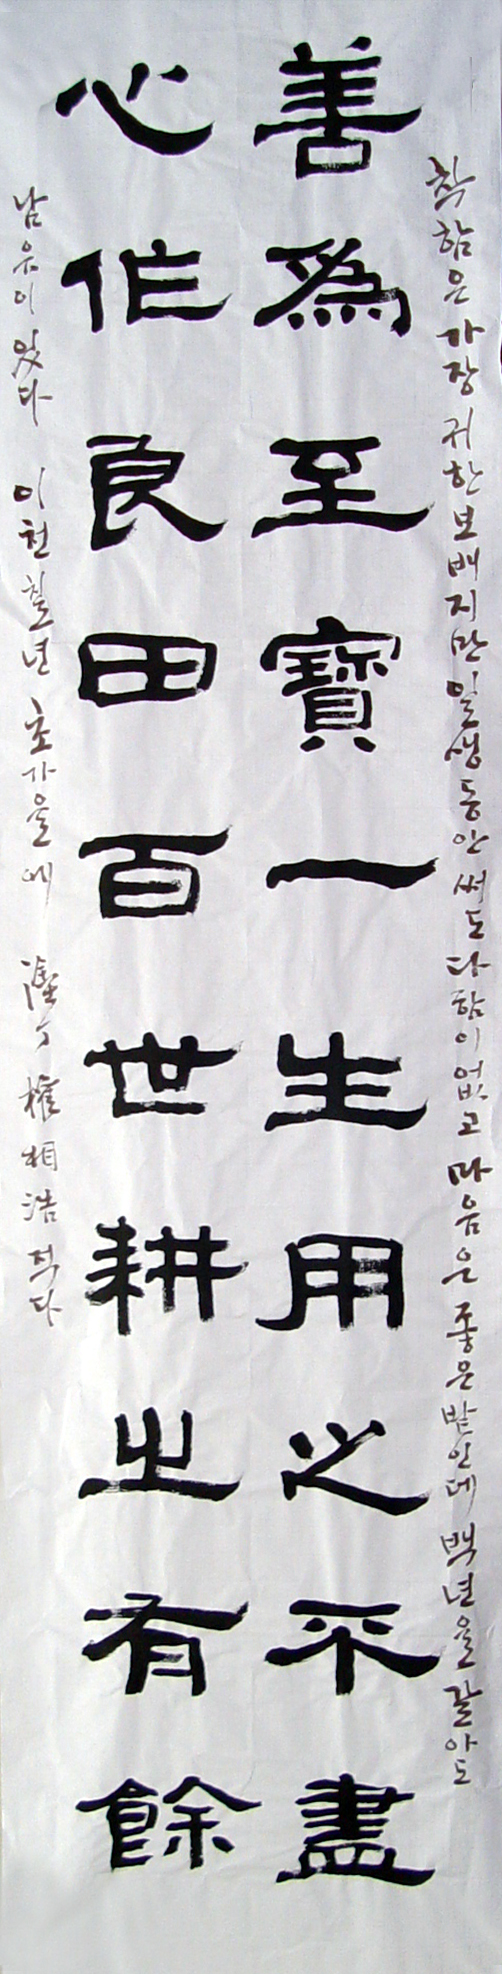 착함은 가장 귀한 보배지만 일생동안 써도 다함이 없고 마음은 좋은 밭인데 백년을 갈아도
善爲至寶一生用之不盡
心作良田百世耕之有餘
남음이 있다 이천칠년 초가을에 丁 權相浩 적다